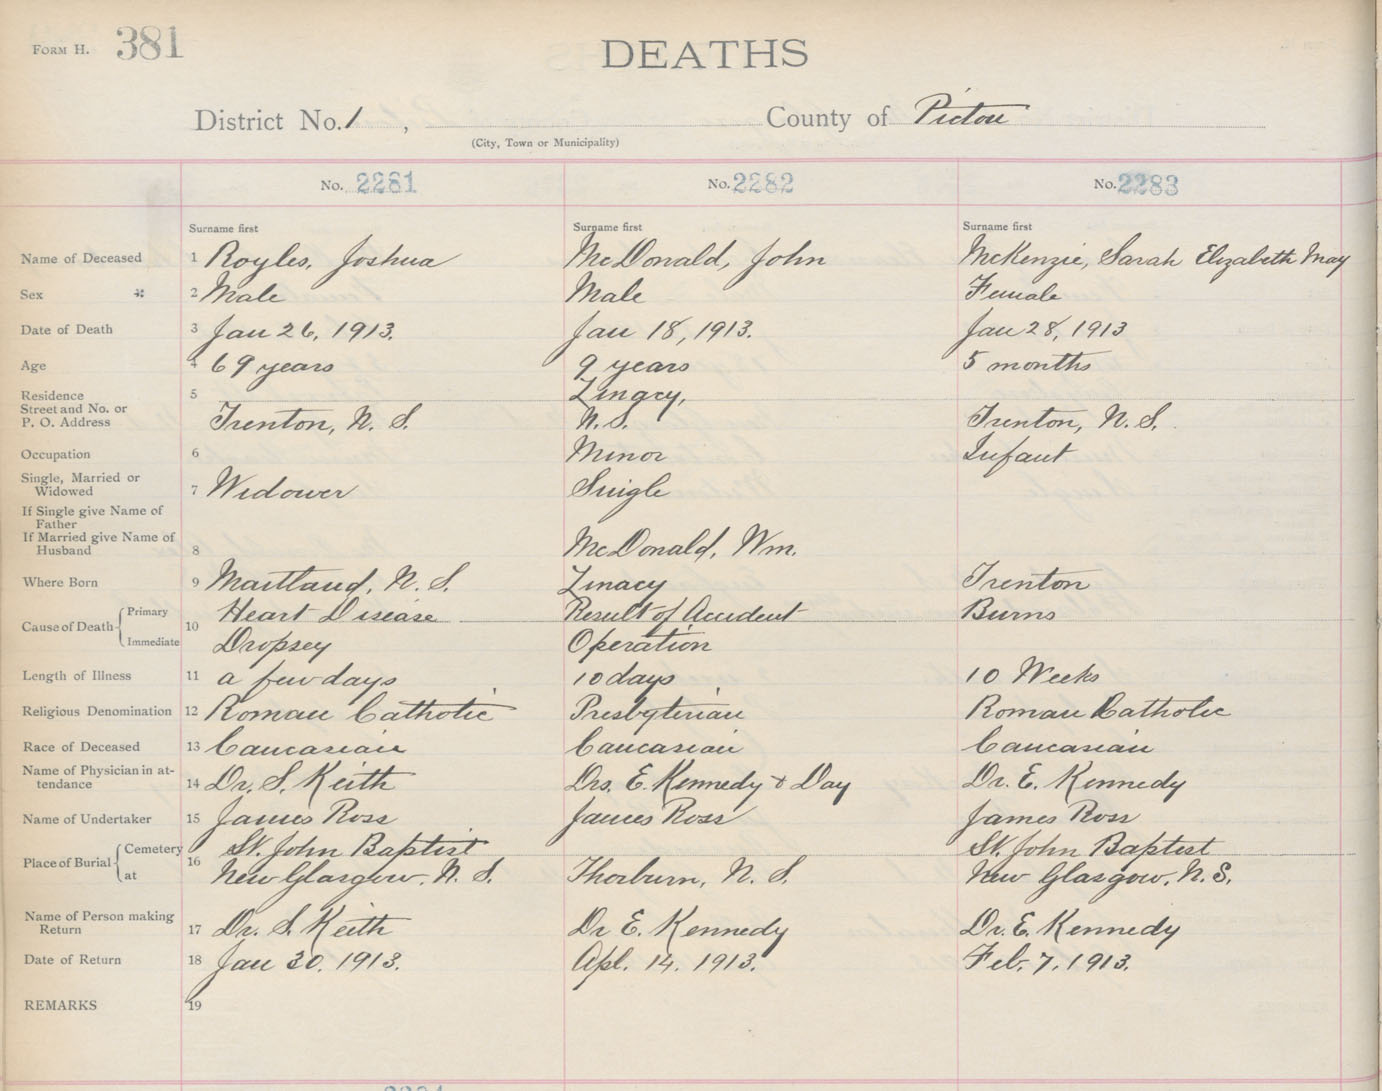 FORM H. 381
DEATHS
District No. 1 , County of Pictou
(City, Town or Municipality)
No. 2281 No. 2282 No. 2283
Surname first Surname first Surname first
Name of Deceased 1 Royles, Joshua McDonald, John McKenzie, Sarah Elizabeth May
Sex 2 Male Male Female
Date of Death 3 Jan 26, 1913. Jan 18, 1913. Jan 28, 1913
Age 4 69 years 9 years 5 months
Residence 5 Linacy,
Street and No. or
P. O. Address Trenton, N. S. N. S. Trenton, N. S.
Occupation 6 Minor Infant
Single, Married or
Widowed 7 Widower Single
If Single give Name of
Father
If Married give Name of
Husband 8 McDonald, Wm.
Where Born 9 Maitland, N. S. Linacy Trenton
Cause of Death 10 Primary Heart Disease Result of Accident Burns
Immediate Dropsey Operation
Length of Illness 11 a few days 10 days 10 Weeks
Religious Denomination 12 Roman Catholic Presbyterian Roman Catholic
Race of Deceased 13 Caucasian Caucasian Caucasian
Name of Physician in at-
tendance 14 Dr. S. Keith Drs. E. Kennedy & Day Dr. E. Kennedy
Name of Undertaker 15 James Ross James Ross James Ross
Place of Burial 16 Cemetery St. John Baptist St. John Baptist
at New Glasgow, N. S. Thorburn, N. S. New Glasgow, N. S.
Name of Person making
Return 17 Dr. S. Keith Dr E. Kennedy Dr. E. Kennedy
Date of Return 18 Jan 30. 1913. Apl. 14. 1913. Feb. 7. 1913.
REMARKS 19